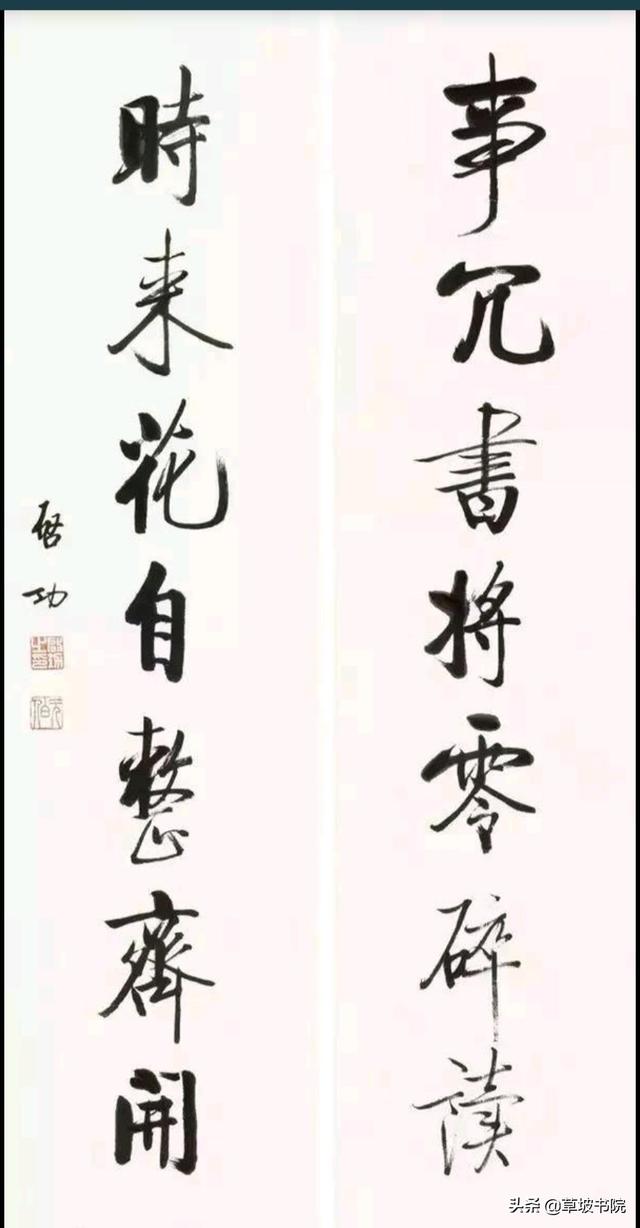 事冗書將零碎讀
時来花自整齊開
啓功
头条 @草坡书院